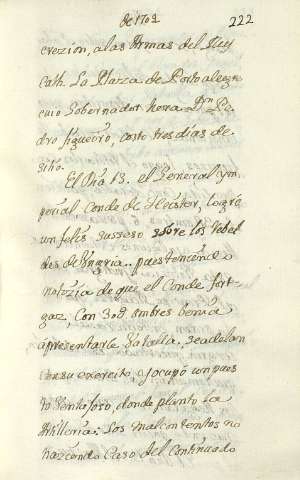 de 1704 222
crezion, a las Armas del Rey
Cath. La Plaza de Portoalegre
cuio Gobernador hera Dn Pe
dro figueiro, costo tres dias de
sitio.
El Dia 13. el General Ym
perial Conde de Heister, logró
un felis susseso sobre los Rebel
des de Ungria. pues teniendo
notizia de que el Conde for
gaz, con 30 ombres benia
a presentarle Batalla, se adelan
con su exercito, y ocupó un pues
to bentajoso, donde planto la
Artilleria: Los malcontentos no
haziendo Caso del Continuado